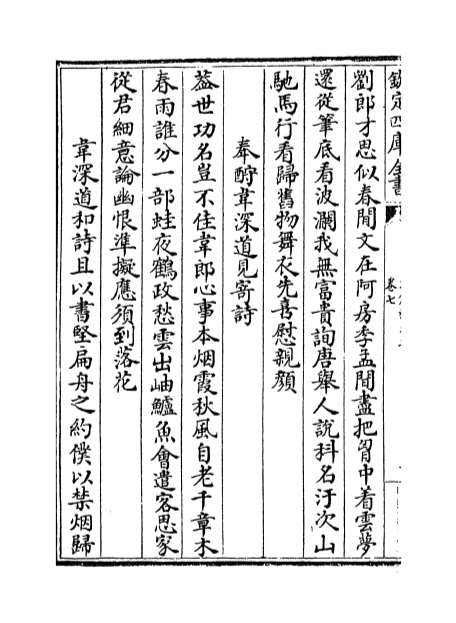 欽定四庫全書
卷七
劉郎才思似春閒文在阿房季孟間盡把胷中着雲夢
還從筆底看波瀾我無富貴詢唐舉人說科名汙次山
馳馬行看歸舊物舞衣先喜慰親顏
奉酧韋深道見寄詩
葢世功名豈不佳韋郎心事本烟霞秋風自老千章木
春雨誰分一部蛙夜鶴政愁雲出岫鱸魚㑹遣客思家
從君細意論幽恨準擬應須到落花
韋深道和詩且以書堅扁舟之約僕以禁烟歸